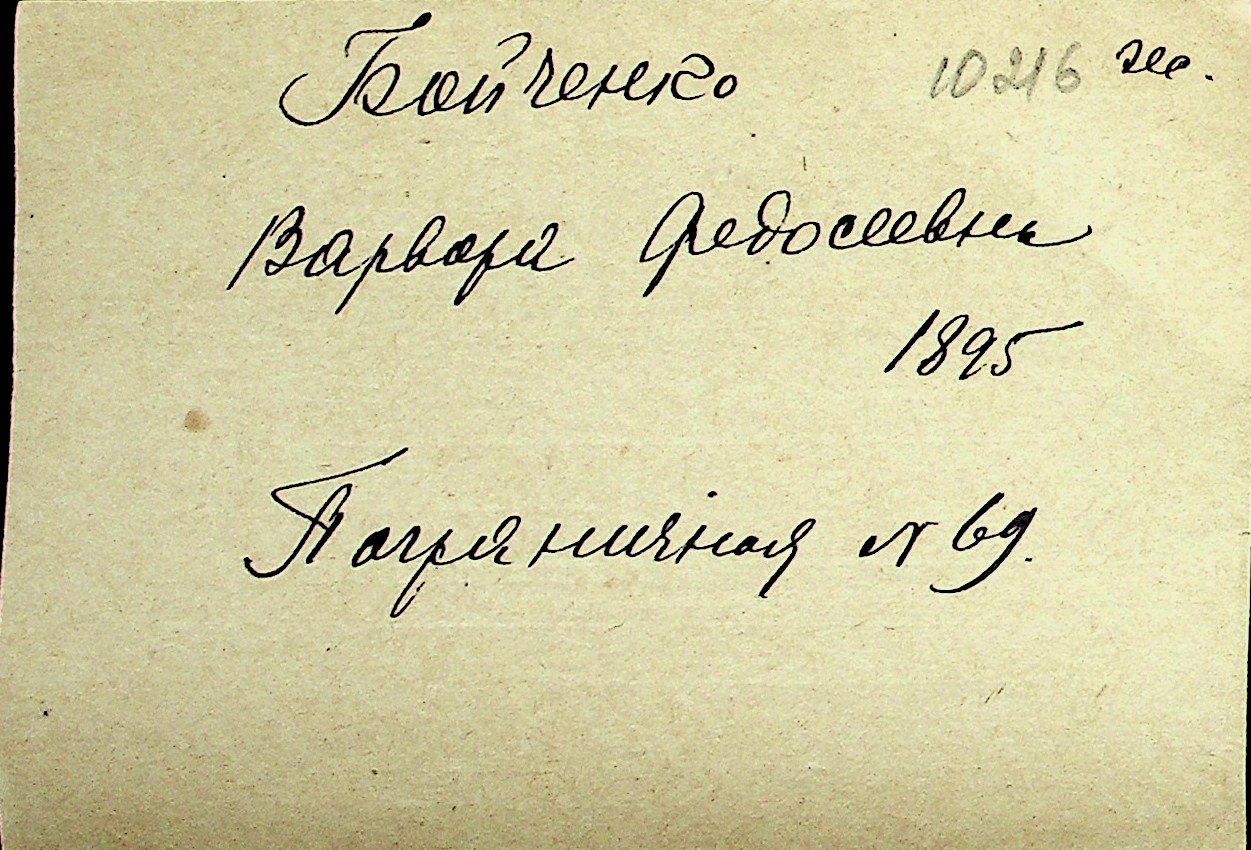 Бойченко 10216 ж.
Варвара Федосеевна
1895
Пограничная № 69.